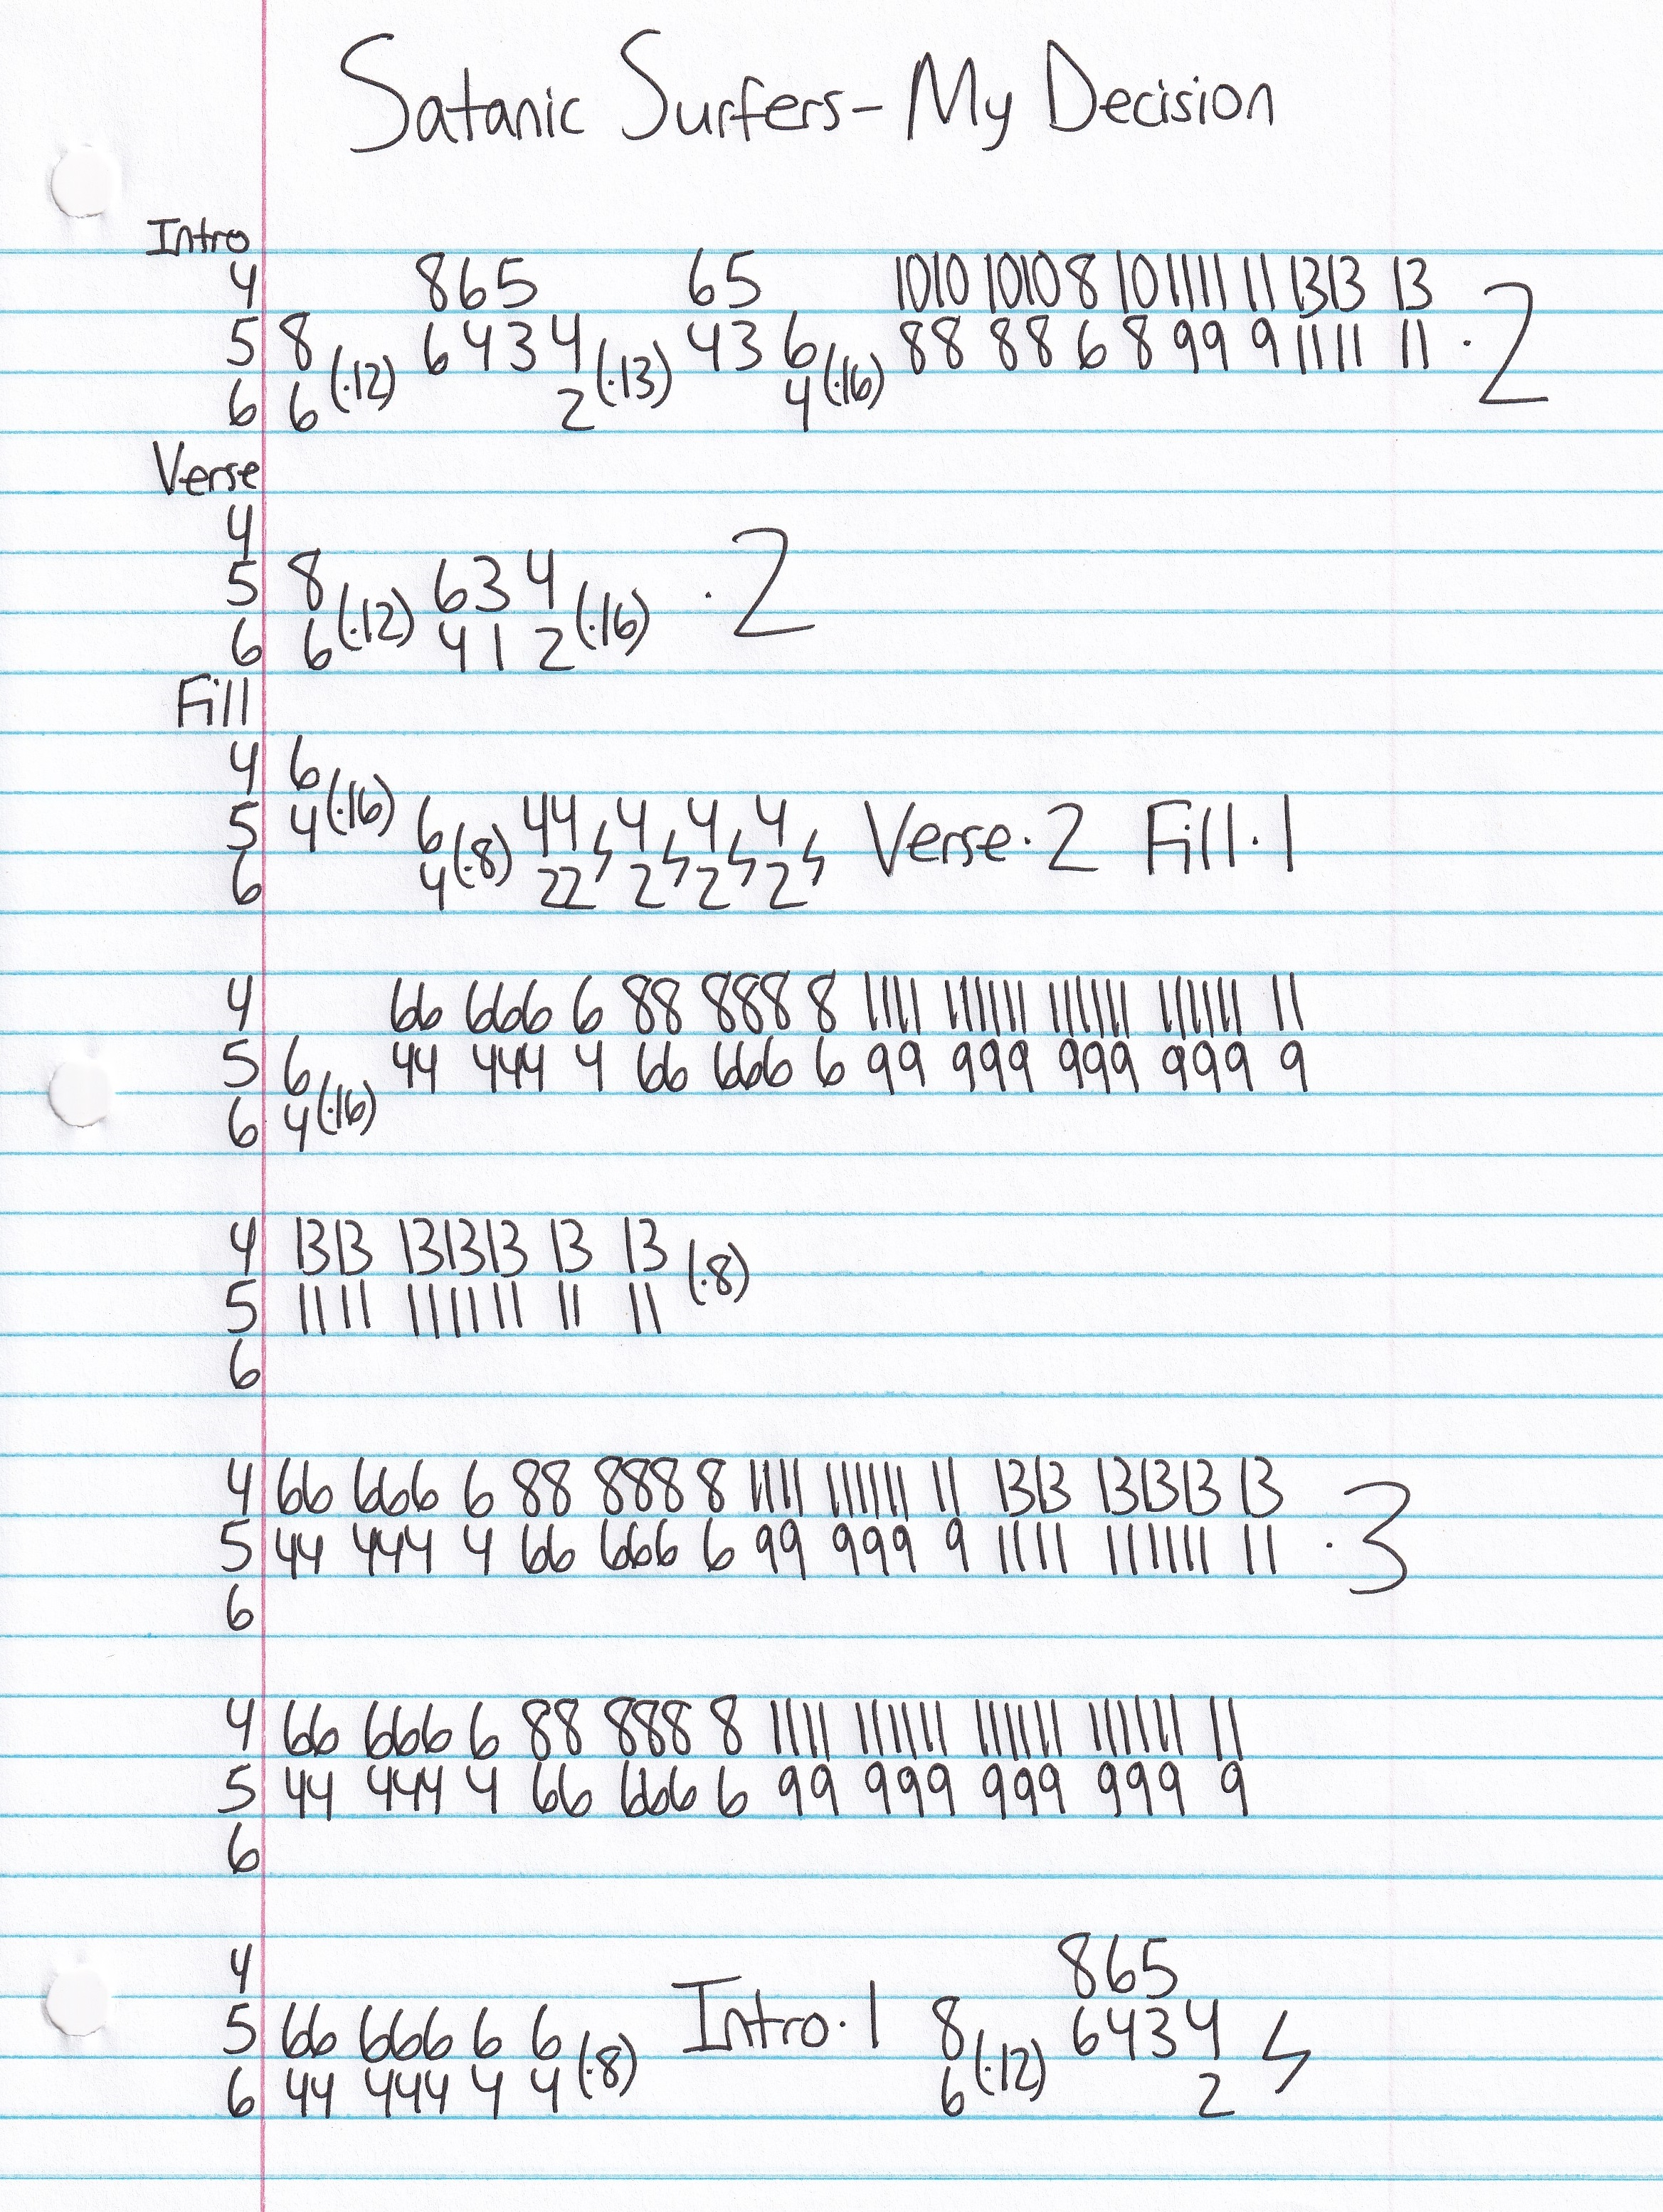 Satanic Surfers - My Decision
Intro
4 865 65 1010 1010 8 10 1111 11 1313 13
5 8 (·12) 6434 (·13) 43 6 (·16) 88 88 6 8 99 9 1111 11 ·2
6 6 2 4
Verse
4
5 8 (·12) 634 (·16) ·2
6 6 412
Fill
4 6
5 4 (·16) 6 (·8) 44 ϟ 4 ϟ 4 ϟ 4 ϟ Verse·2 Fill·1
6 4 22 2 2 2
4 66 666 6 88 888 8 1111 111111 111111 111111 11
5 6 (·16) 44 444 4 66 666 6 99 999 999 999 9
6 4
4 1313 131313 13 13 (·8)
5 1111 111111 11 11
6
4 66 666 6 88 888 8 1111 111111 11 1313 131313 13
5 44 444 4 66 666 6 99 999 9 1111 111111 11 ·3
6
4 66 666 6 88 888 8 1111 111111 111111 111111 11
5 44 444 4 66 666 6 99 999 999 999 9
6
4 865
5 66 666 6 6 (·8) Intro·1 8 (·12) 6434 ϟ
6 44 444 4 4 6 2